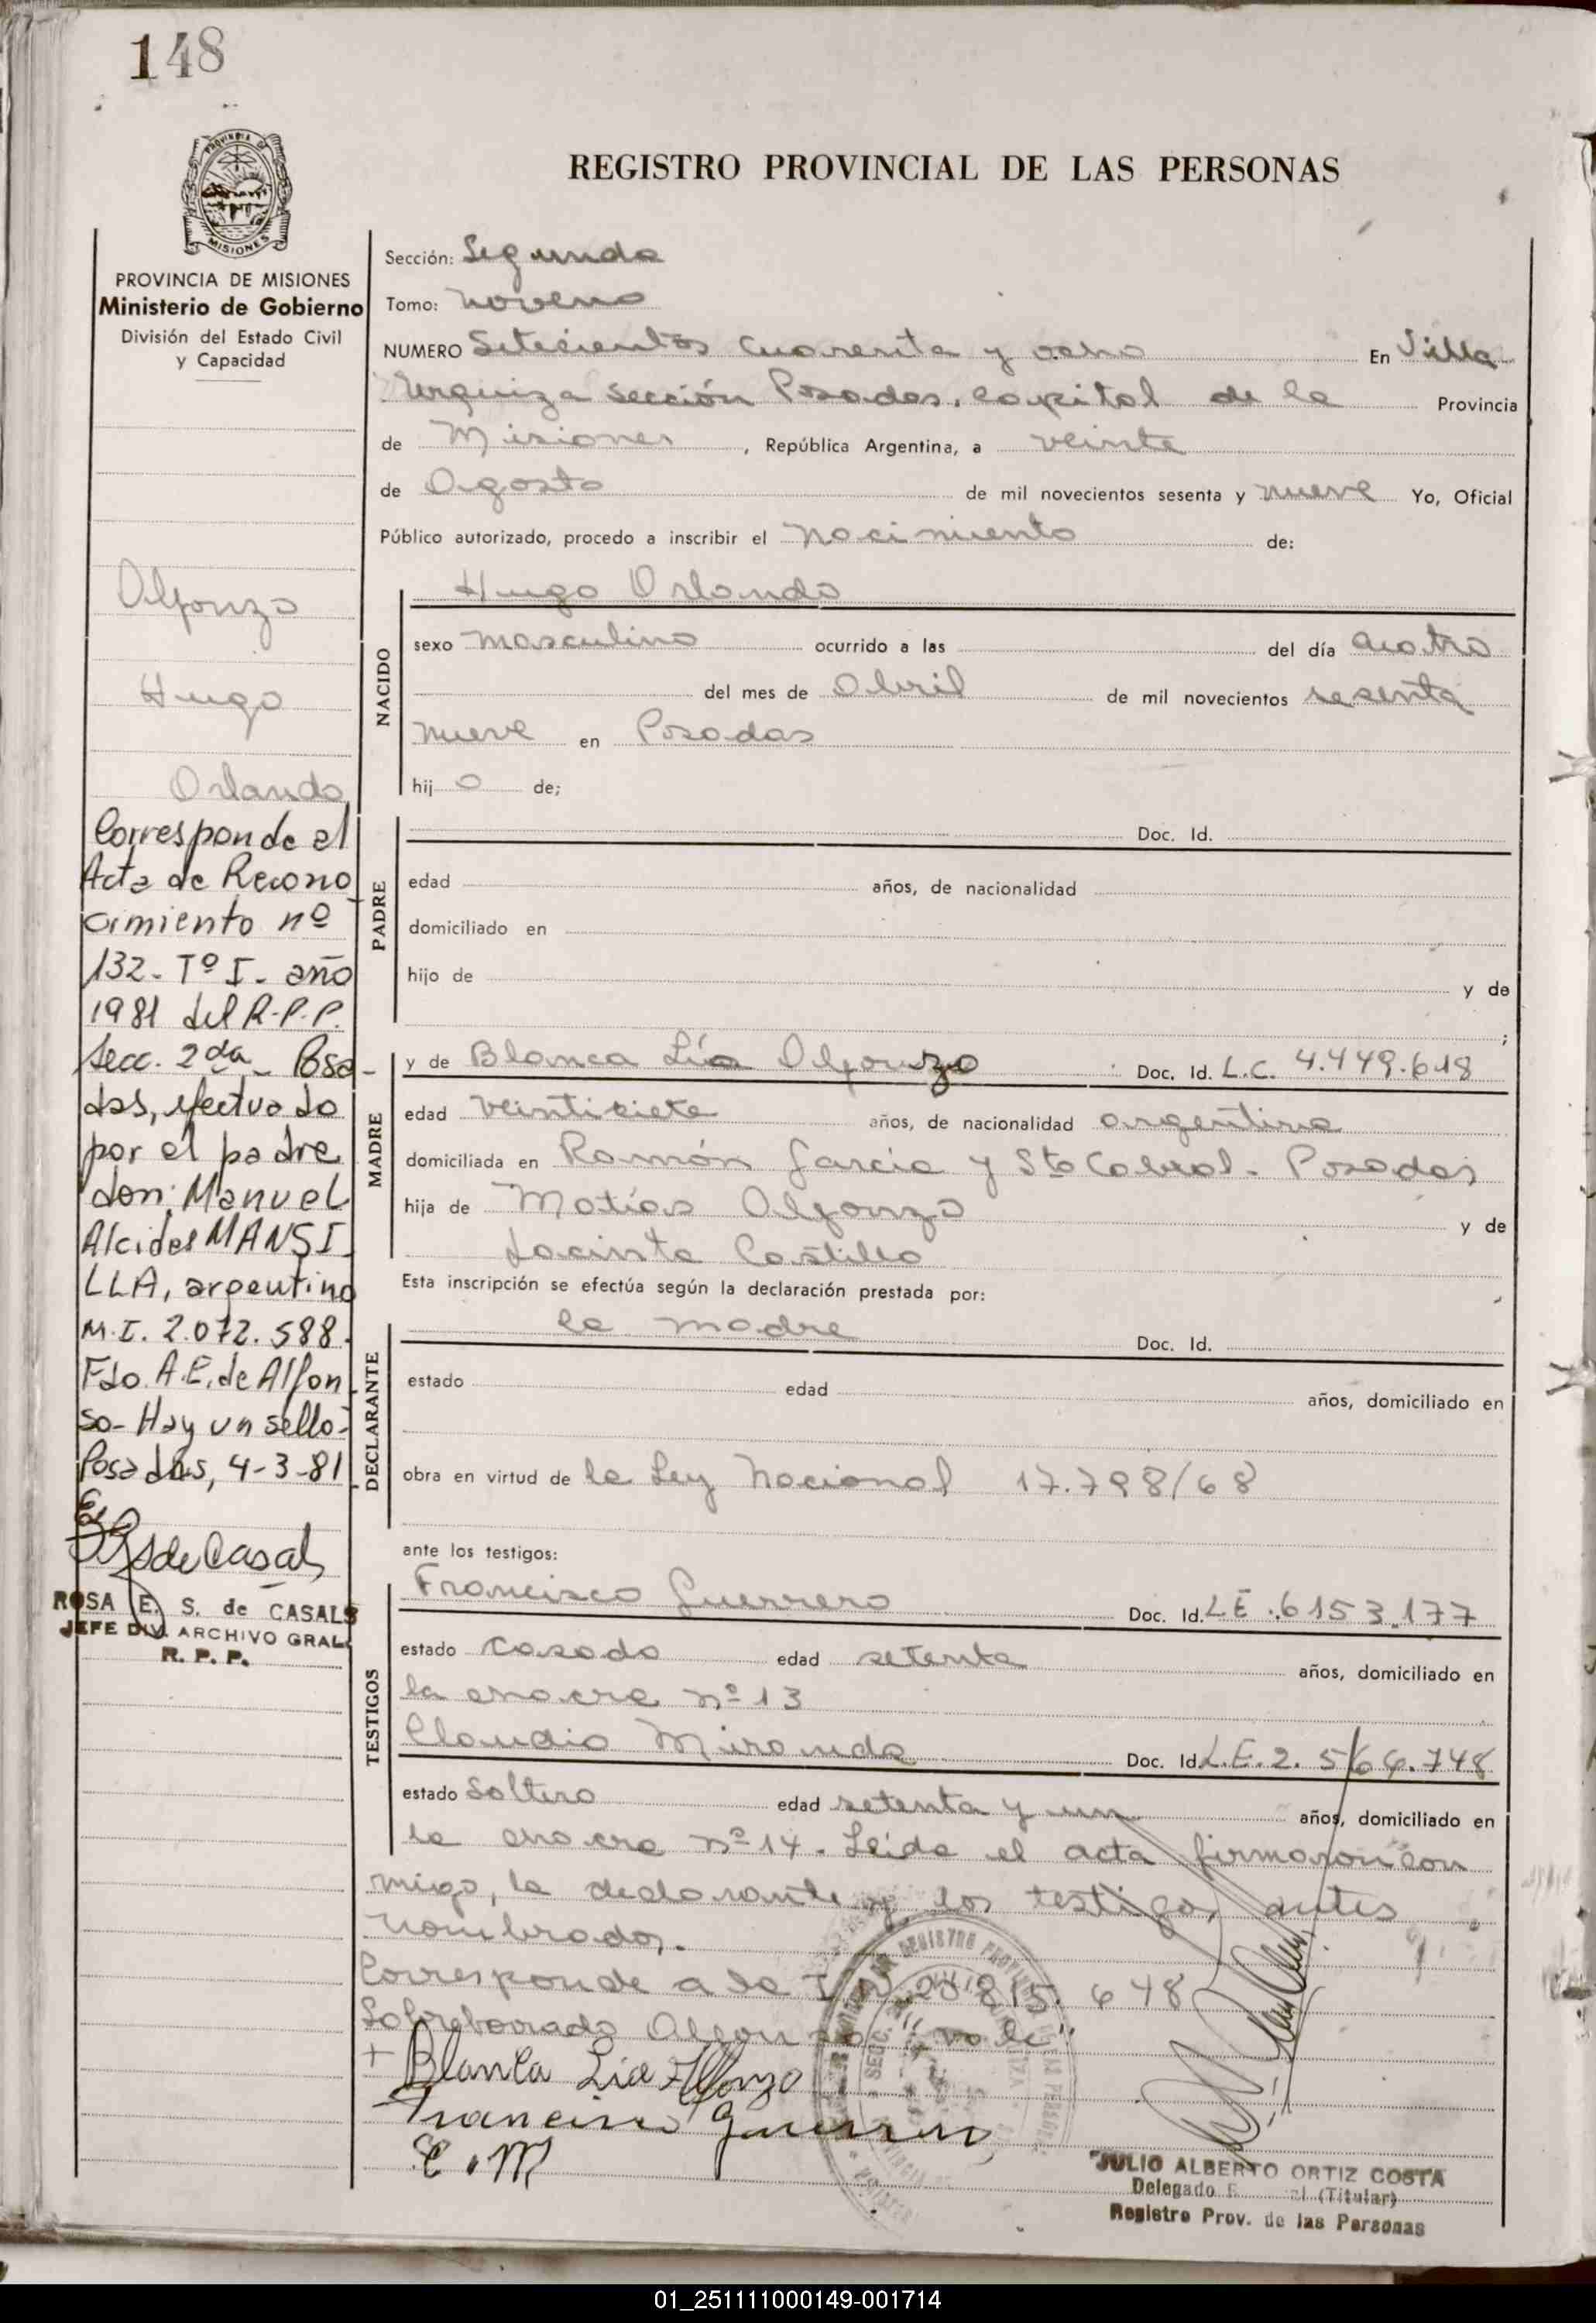 148
PROVINCIA DE
MISIONES
REGISTRO PROVINCIAL DE LAS PERSONAS
PROVINCIA DE MISIONES
Ministerio de Gobierno
División del Estado Civil
y Capacidad
Sección: Segunda
Tomo: noveno
NUMERO Setecientos cuarenta y ocho En Villa
Urquiza sección Posadas, capital de la Provincia
de Misiones, República Argentina, a veinte
de Agosto de mil novecientos sesenta y nueve Yo, Oficial
Público autorizado, procedo a inscribir el nacimiento de:
NACIDO
Hugo Orlando
sexo masculino ocurrido a las del día cuatro
del mes de Abril de mil novecientos sesenta
nueve en Posadas
hij o de;
PADRE
Doc. Id.
edad años, de nacionalidad
domiciliado en
hijo de y de
;
MADRE
y de Blanca Lía Alfonzo Doc. Id. L.C. 4.449.618
edad veintisiete años, de nacionalidad argentina
domiciliada en Ramón García y Sto Cabral - Posadas
hija de Matías Alfonzo y de
Jacinta Castillo
Esta inscripción se efectúa según la declaración prestada por:
DECLARANTE
la madre Doc. Id.
estado edad años, domiciliado en
obra en virtud de la Ley Nacional 17.798/68
ante los testigos:
TESTIGOS
Francisco Guerrero Doc. Id. LE.6153.177
estado casado edad setenta años, domiciliado en
la chacra nº 13
Claudio Miranda Doc. Id. L.E. 2.564.748
estado soltero edad setenta y un años, domiciliado en
la chacra nº 14. Leida el acta firmaron con
migo, la declarante y los testigos antes
nombrados.
Corresponde a la 20.815.648
Sobreborrado Alfonzo "vale"
+ Blanca Lia Alfonzo
Francisco Guerrero
C.M
JULIO ALBERTO ORTIZ COSTA
Delegado (Titular)
Registro Prov. de las Personas
Alfonzo
Hugo
Orlando
Corresponde al
Acta de Recono
cimiento nº
132- Tº I- año
1981 del R.P.P.
Secc. 2da - Posa-
das, efectuado
por el padre
don: Manuel
Alcides MANSI-
LLA, argentino
M.I. 2.072.588.
Fdo. A.E. de Alfon-
so- Hay un sello-
Posadas, 4-3-81
ROSA E. S. de CASALS
JEFE DIV. ARCHIVO GRAL.
R. P. P.
01_251111000149-001714